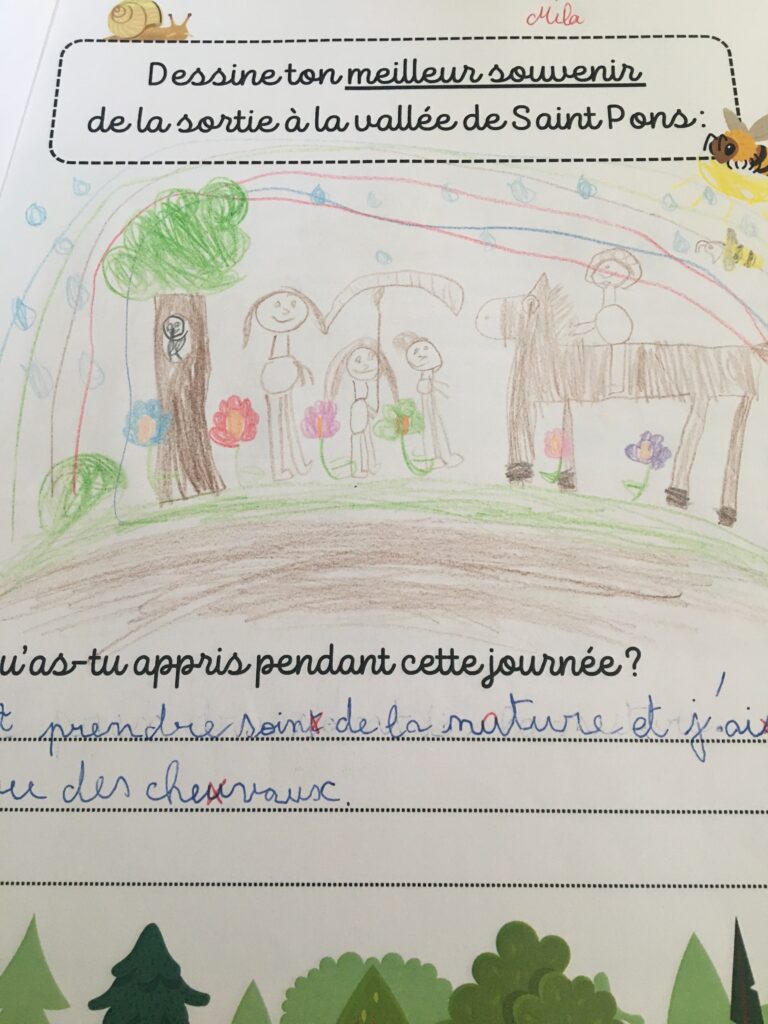 Mila
Dessine ton meilleur souvenir
de la sortie à la vallée de Saint Pons :
u'as-tu appris pendant cette journée ?
t prendre soint de de la nature et j'ai
des cheuvaux.